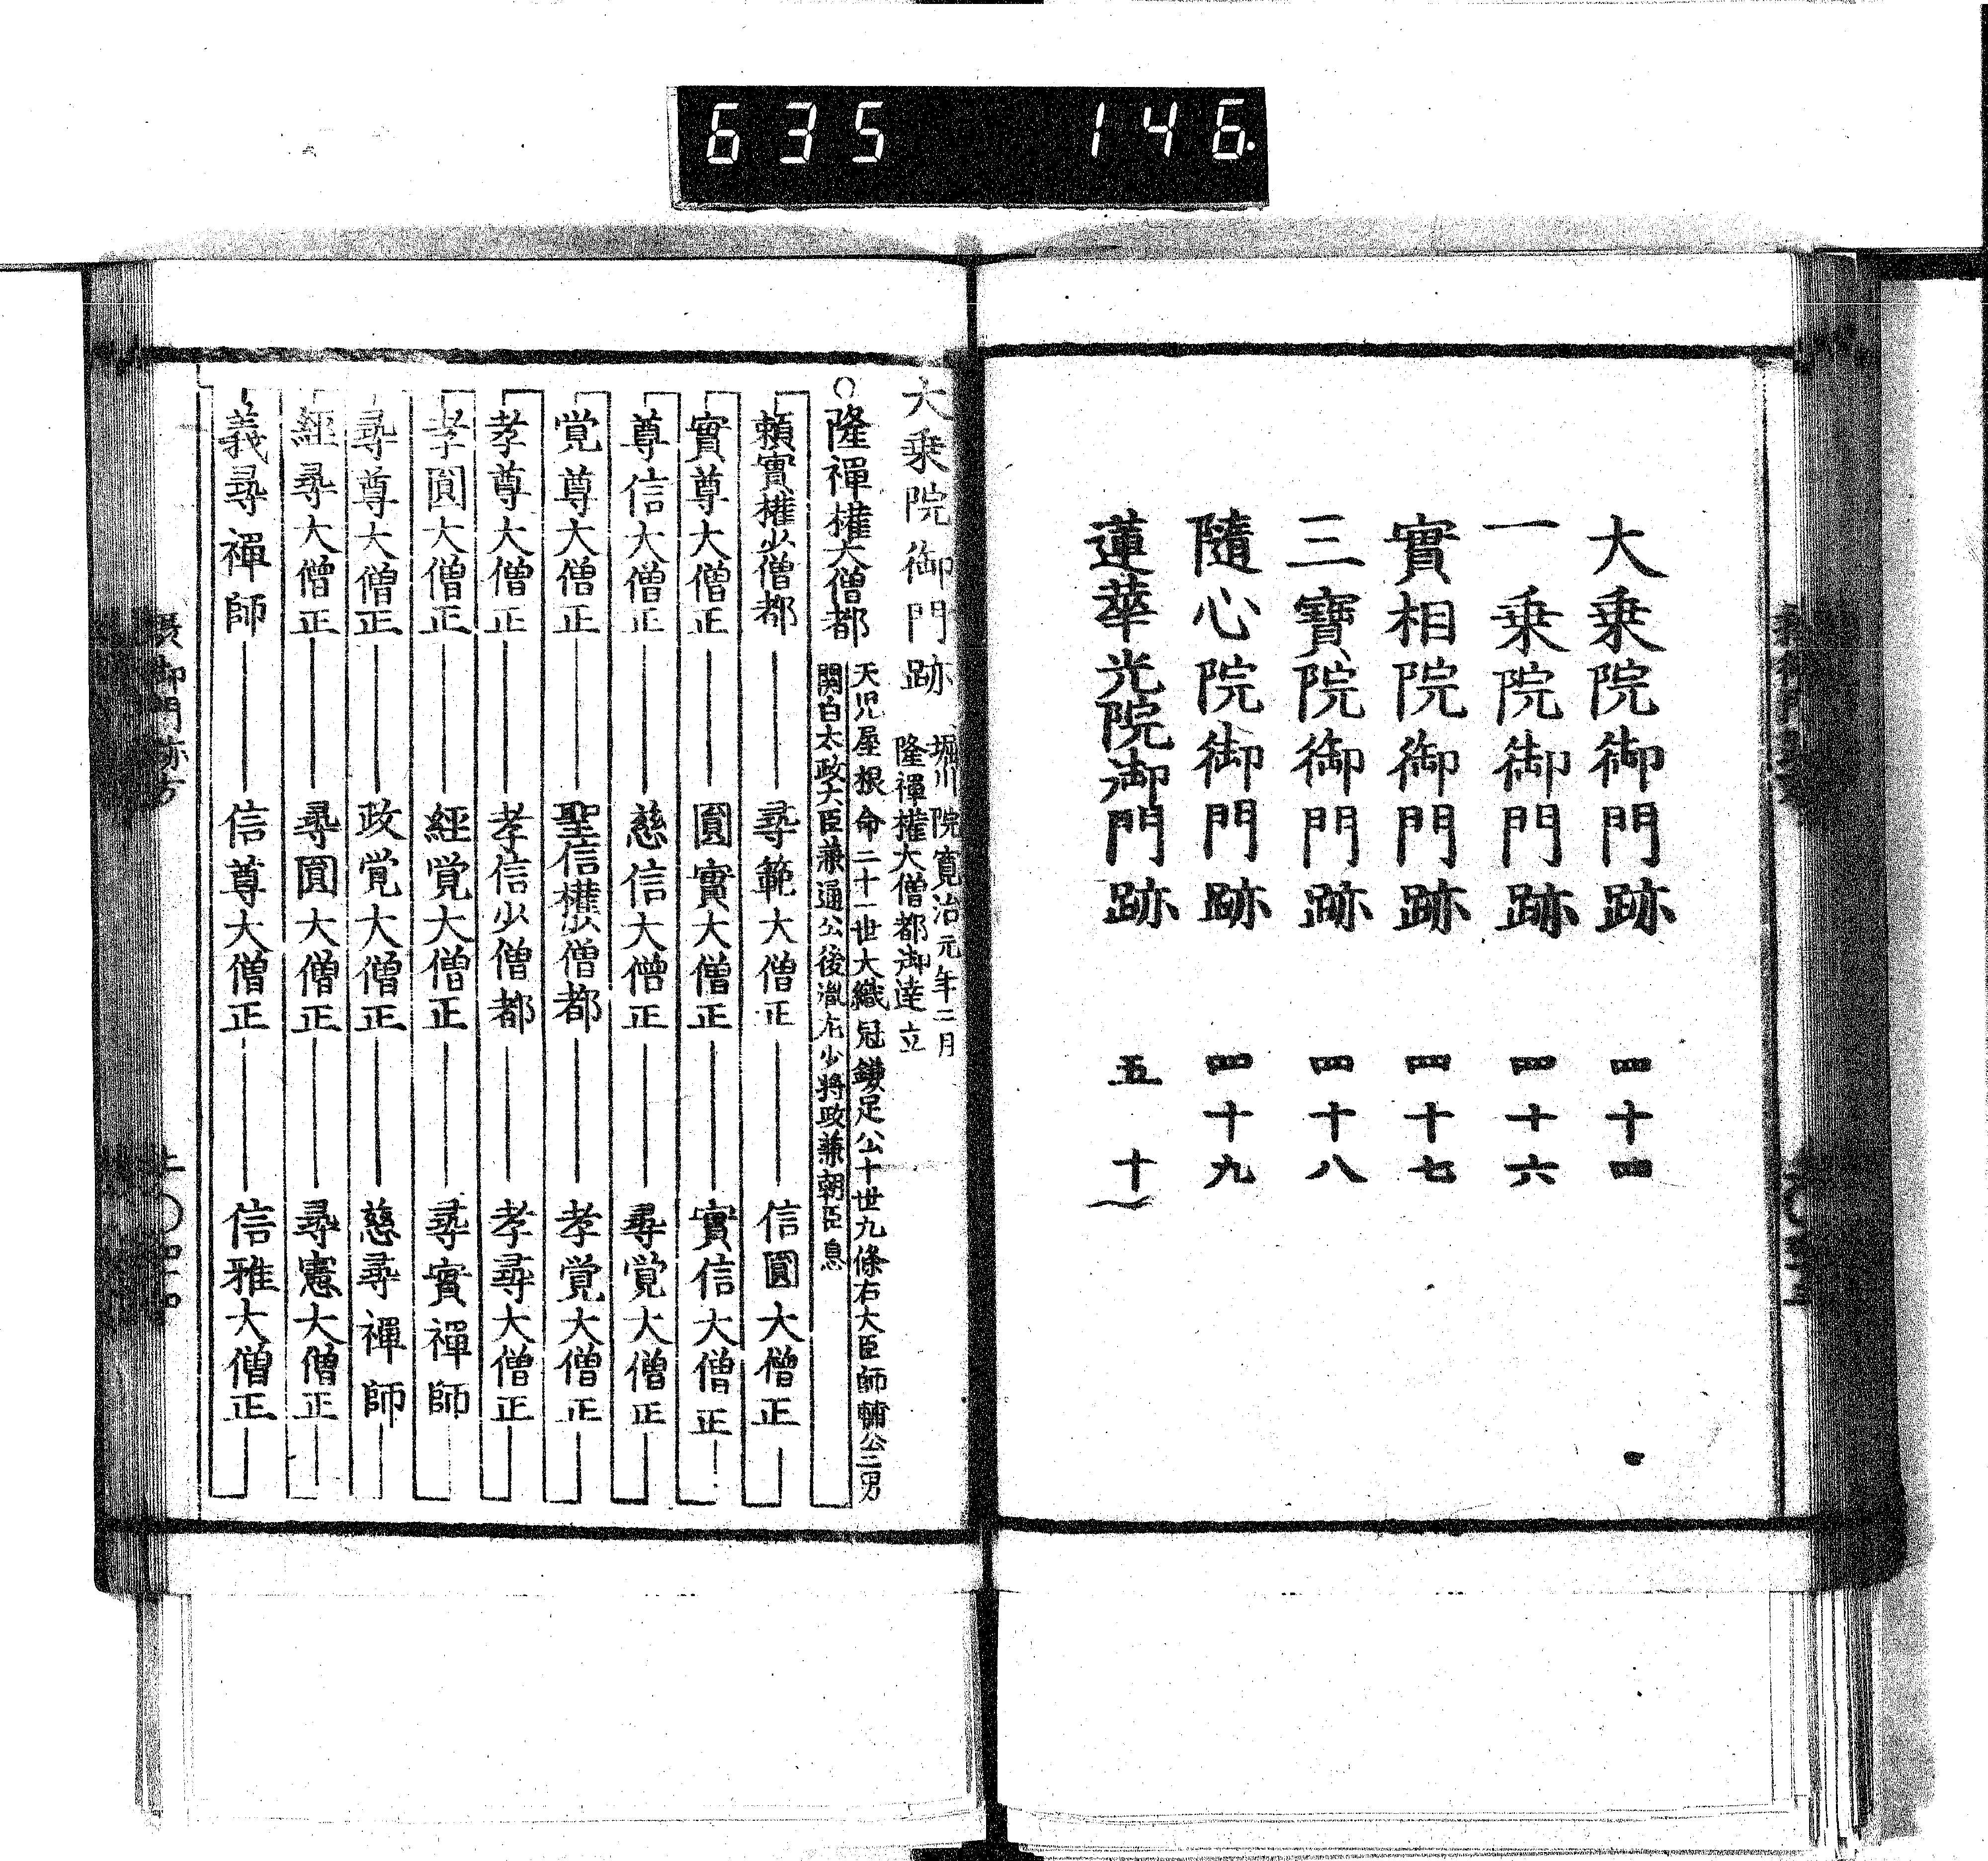 635 146.
大乗院御門跡 四十四
一乗院御門跡 四十六
實相院御門跡 四十七
三寶院御門跡 四十八
隨心院御門跡 四十九
蓮華光院御門跡 五十
大乗院御門跡
堀川院寛治元年二月
隆禪權大僧都御建立
○隆禪權大僧都
天児屋根命二十一世大織冠鎌足公十世九條右大臣師輔公二男
関白太政大臣兼通公後胤左少将政兼朝臣息
頼實權少僧都 尋範大僧正 信圓大僧正
實尊大僧正 圓實大僧正 實信大僧正
尊信大僧正 慈信大僧正 尋覚大僧正
覚尊大僧正 聖信權少僧都 孝覚大僧正
孝尊大僧正 孝信少僧都 孝尋大僧正
孝圓大僧正 經覚大僧正 尋實禪師
尋尊大僧正 政覚大僧正 慈尋禪師
經尋大僧正 尋圓大僧正 尋憲大僧正
義尋禪師 信尊大僧正 信雅大僧正
御門跡方
上○四十四